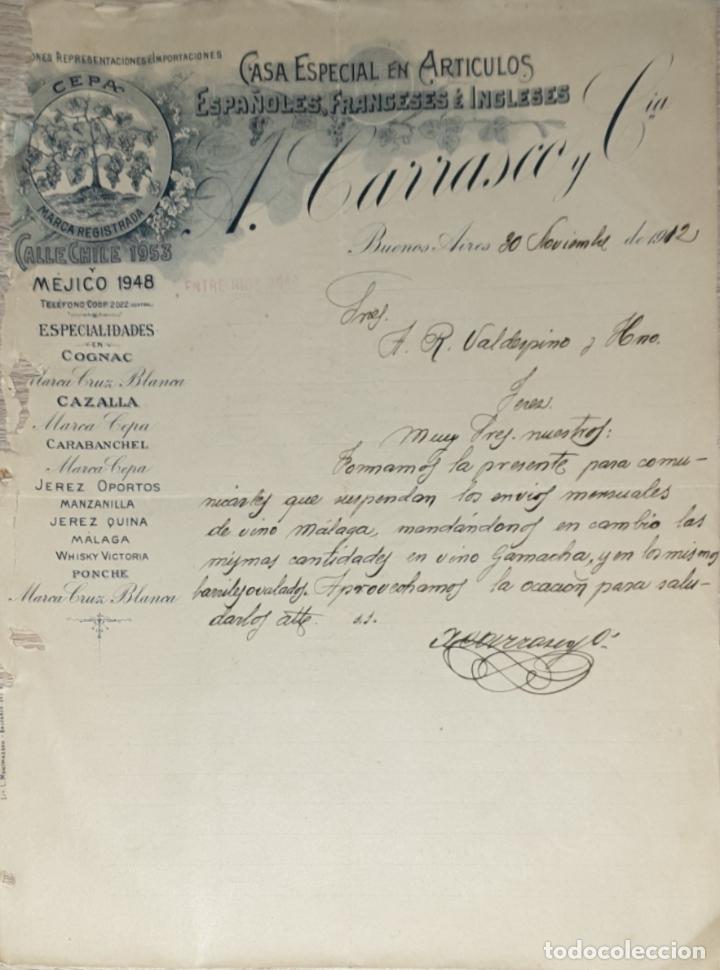 ONES REPRESENTACIONES É IMPORTACIONES
CASA ESPECIAL EN ARTICULOS
ESPAÑOLES, FRANCESES É INGLESES
A. Carrasco y Cia
CEPA
MARCA REGISTRADA
CALLE CHILE 1953
Y
MÉJICO 1948
TELÉFONO COOP. 2022 CENTRAL
ESPECIALIDADES
EN
COGNAC
Marca Cruz Blanca
CAZALLA
Marca Cepa
CARABANCHEL
Marca Cepa
JEREZ OPORTOS
MANZANILLA
JEREZ QUINA
MÁLAGA
WHISKY VICTORIA
PONCHE
Marca Cruz Blanca
ENTRE RIOS
Buenos Aires 30 Noviembre de 1912
Sres.
A. R. Valdespino y Hno.
Jerez.
Muy Sres. nuestros:
Tomamos la presente para comu-
nicarles que suspendan los envios mensuales
de vino Málaga, mandándonos en cambio las
mismas cantidades en vino Garnacha, y en los mismos
barriles ovalados. Aprovechamos la ocación para salu-
darlos atte. s.s.
A Carrasco y Cª
todocoleccion